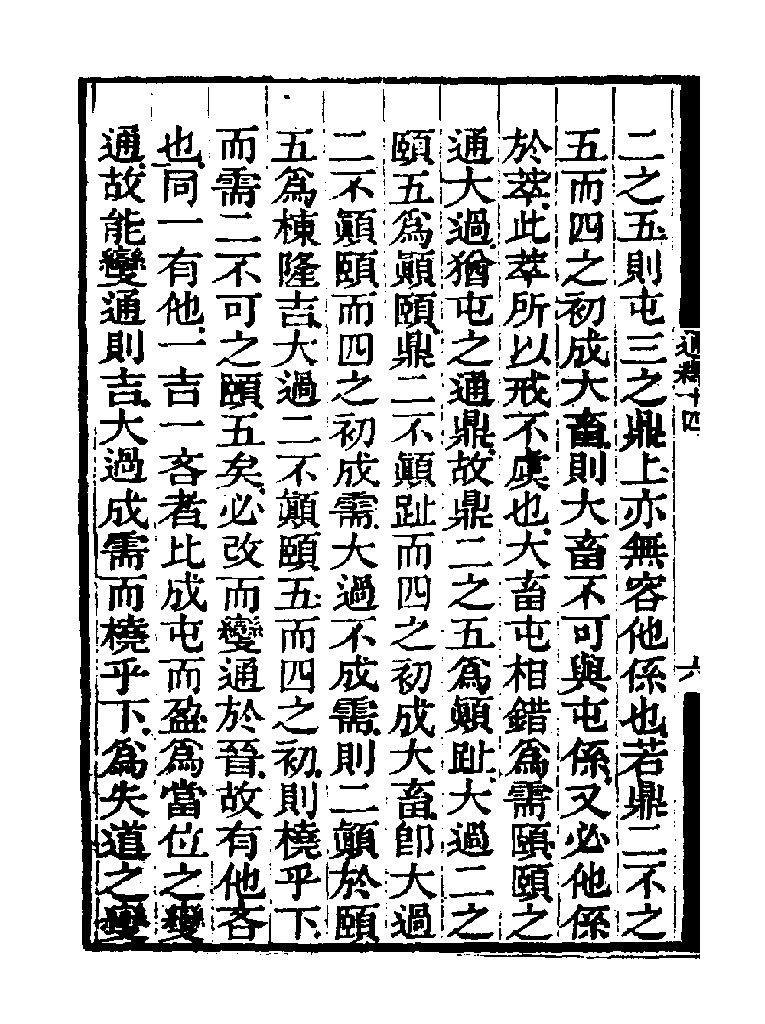 二之五則屯三之鼎上亦無容他係也若鼎二不之
五而四之初成大畜則大畜不可與屯係又必他係
於萃此萃所以戒不虞也大畜屯相錯爲需頤頤之
通大過猶屯之通鼎故鼎二之五爲顚趾大過二之
頤五爲顚頤鼎二不顚趾而四之初成大畜卽大過
二不顚頤而四之初成需大過不成需則二顚於頤
五爲棟隆吉大過二不顚頤五而四之初則橈乎下
而需二不可之頤五矣必改而變通於晉故有他吝
也同一有他一吉一吝者比成屯而盈爲當位之變
通故能變通則吉大過成需而橈乎下爲失道之變
通釋十四
六